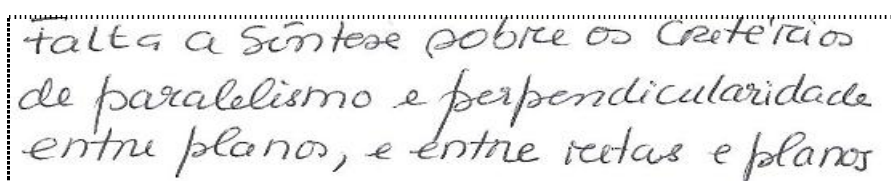 Falta a Síntese sobre os Critérios
de paralelismo e perpendicularidade
entre planos, e entre retas e planos